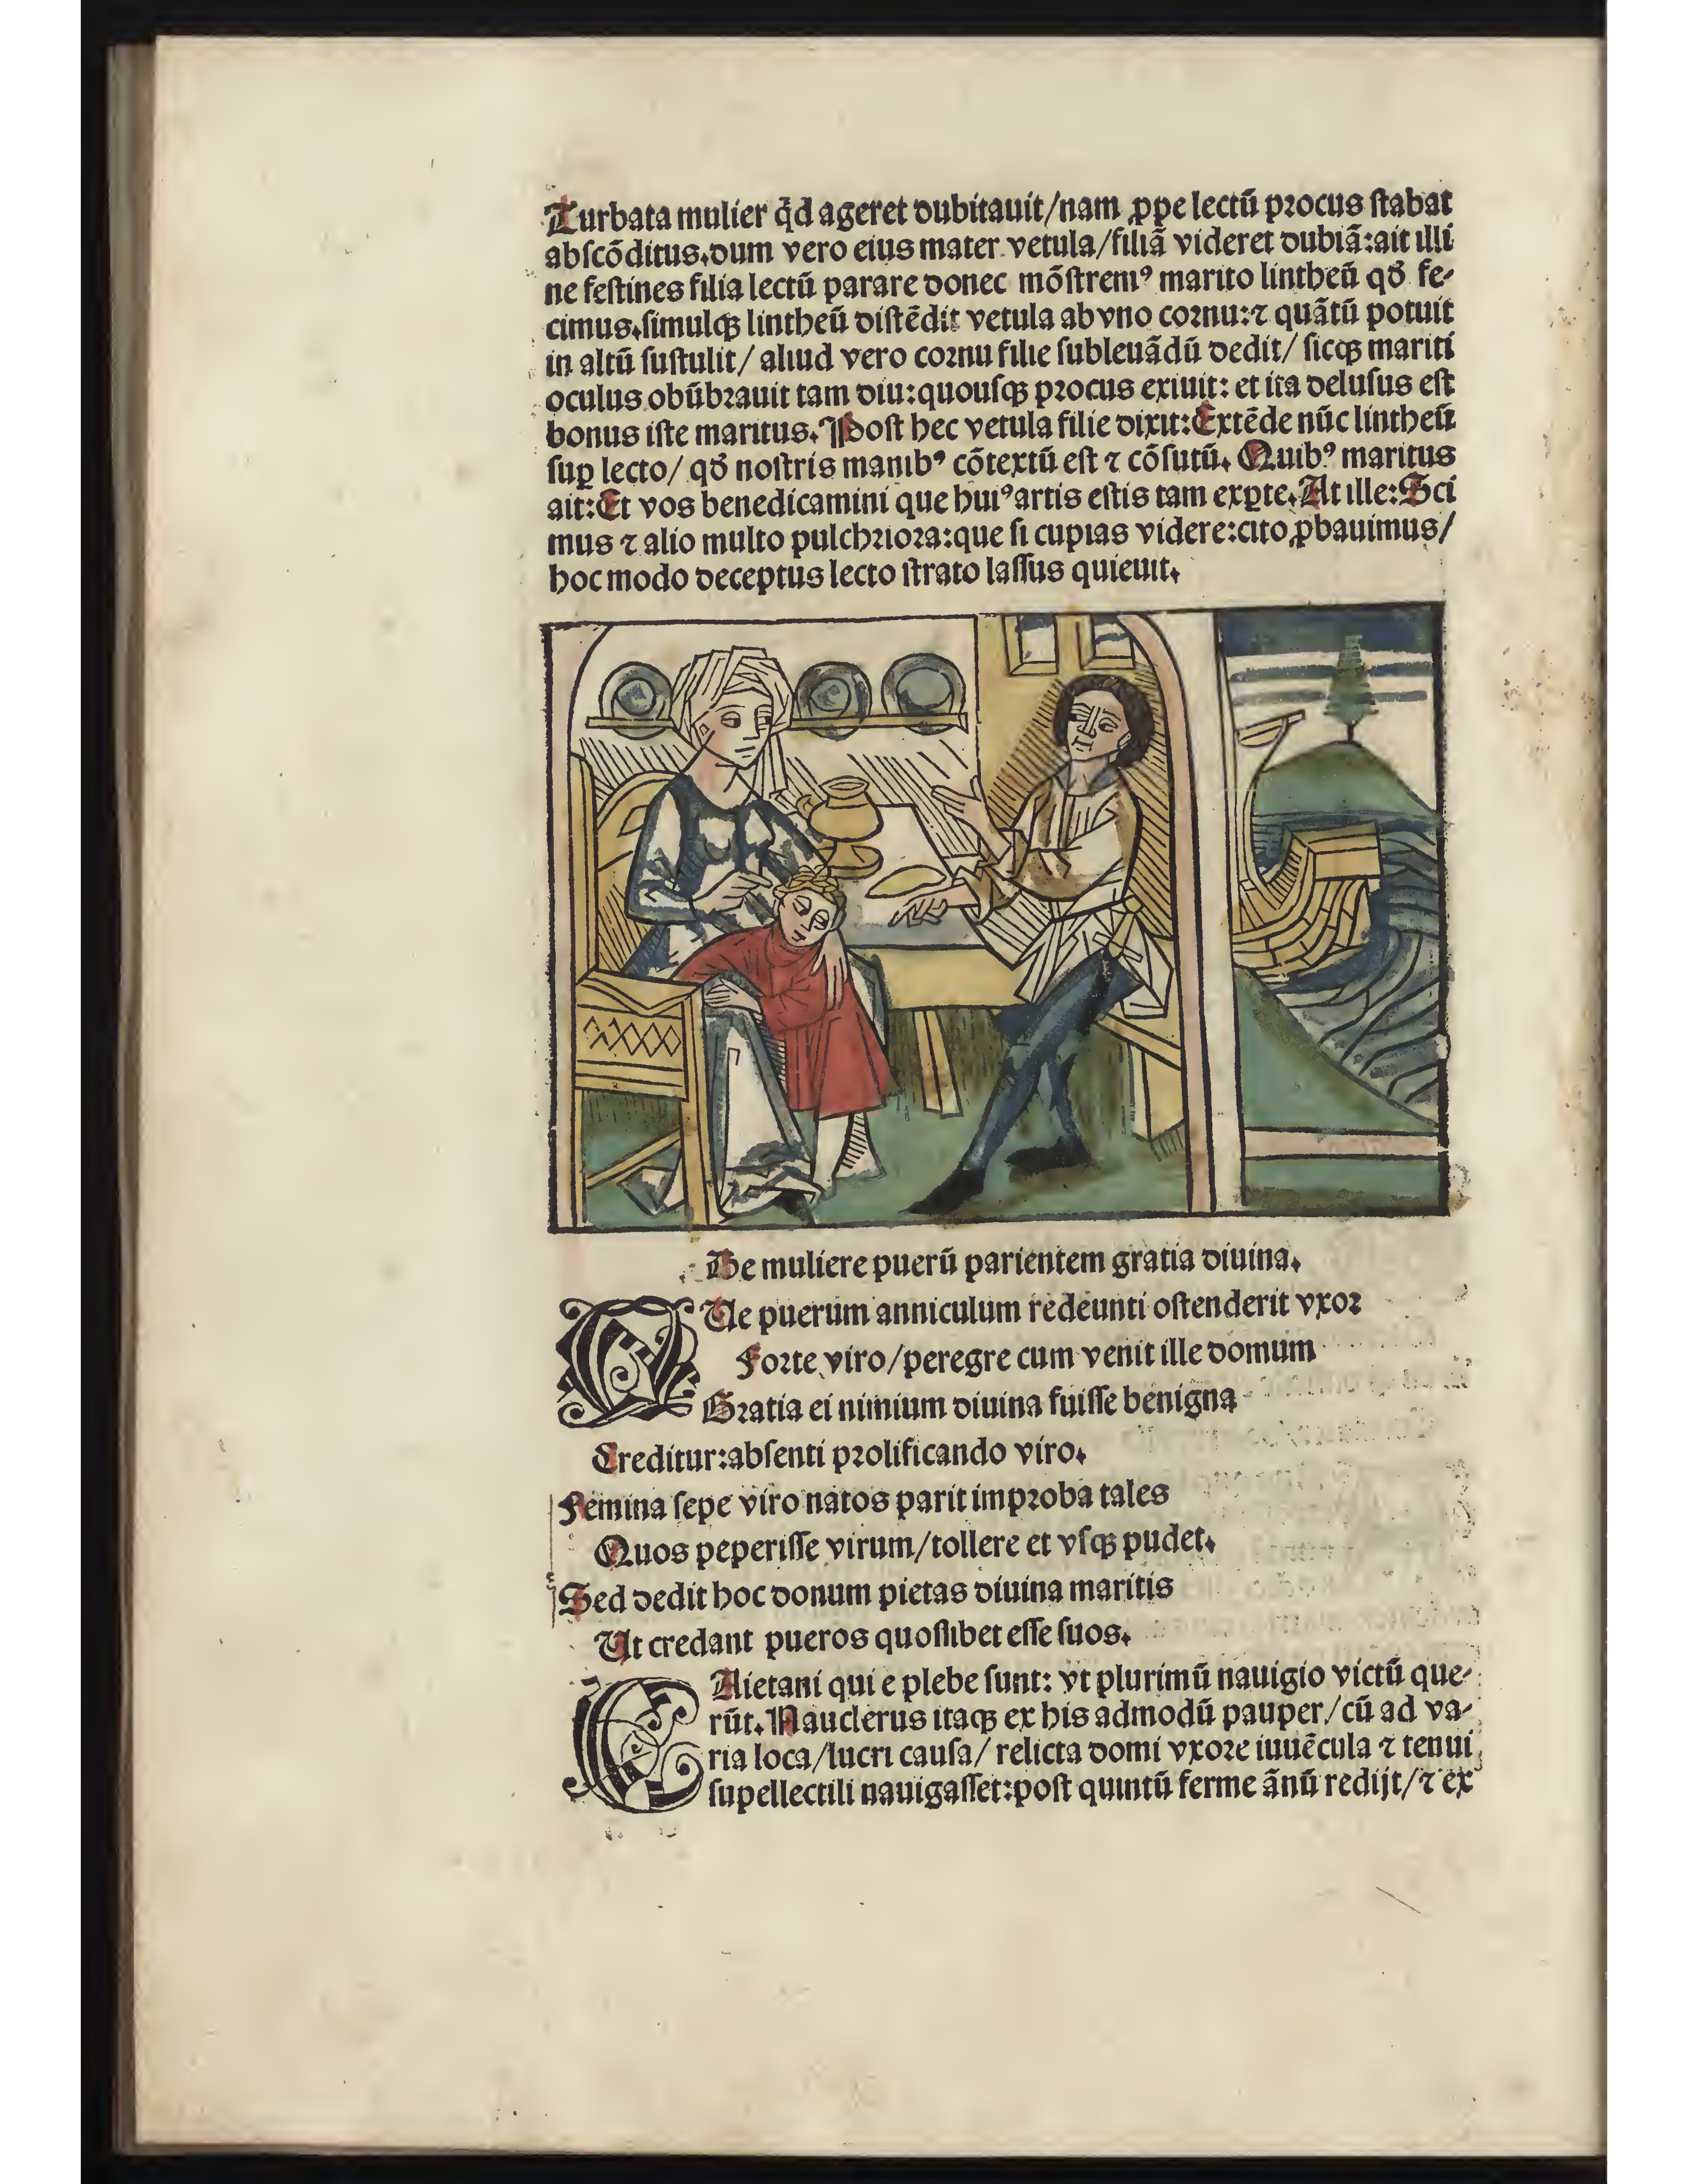 Turbata mulier qd̄ ageret dubitauit/nam ꝓpe lectū procus ſtabat
abſcōditus.dum vero eius mater vetula/filiā videret dubiā:ait illi
ne feſtines filia lectū parare donec mōſtremꝰ marito lintheū qđ fe-
cimus.ſimulqꝫ lintheū diſtēdit vetula ab vno cornu:⁊ quātū potuit
in altū ſuſtulit/ aliud vero cornu filie ſubleuādū dedit/ ſicqꝫ mariti
oculus obūbrauit tam diu:quouſqꝫ procus exiuit: et ita deluſus eſt
bonus iſte maritus. Poſt hec vetula filie dixit:Extēde nūc lintheū
ſuꝑ lecto/ qđ noſtris manibꝰ cōtextū eſt ⁊ cōſutū. Quibꝰ maritus
ait:Et vos benedicamini que huiꝰ artis eſtis tam exꝑte.At ille:Sci
mus ⁊ alio multo pulchriora:que ſi cupias videre:cito ꝓbauimus/
hoc modo deceptus lecto ſtrato laſſus quieuit.
De muliere puerū parientem gratia diuina.
QUe puerum anniculum redeunti oſtenderit vxor
Forte viro/peregre cum venit ille domum
Gratia ei nimium diuina fuiſſe benigna
Creditur:abſenti prolificando viro.
Femina ſepe viro natos parit improba tales
Quos peperiſſe virum/tollere et vſqꝫ pudet.
Sed dedit hoc donum pietas diuina maritis
Ut credant pueros quoſlibet eſſe ſuos.
CAietani qui e plebe ſunt: vt plurimū nauigio victū que-
rūt. Nauclerus itaqꝫ ex his admodū pauper/cū ad va-
ria loca/lucri cauſa/ relicta domi vxore iuuēcula ⁊ tenui
ſupellectili nauigaſſet:poſt quintū ferme ānū redijt/⁊ ex